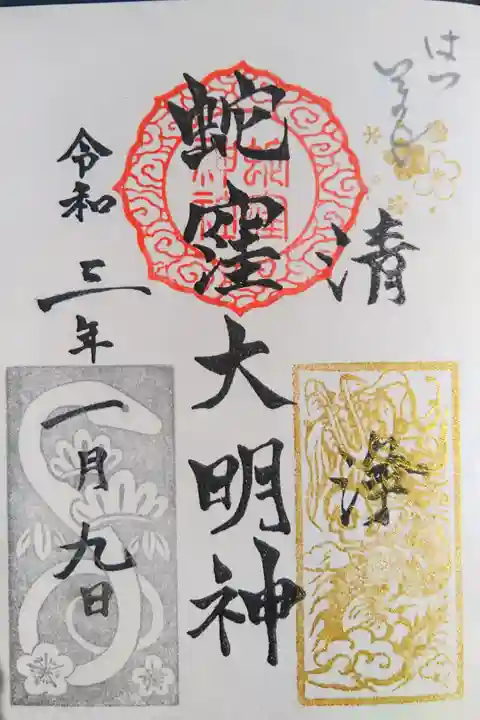 はつ
清
浄
蛇窪大明神
令和三年一月九日